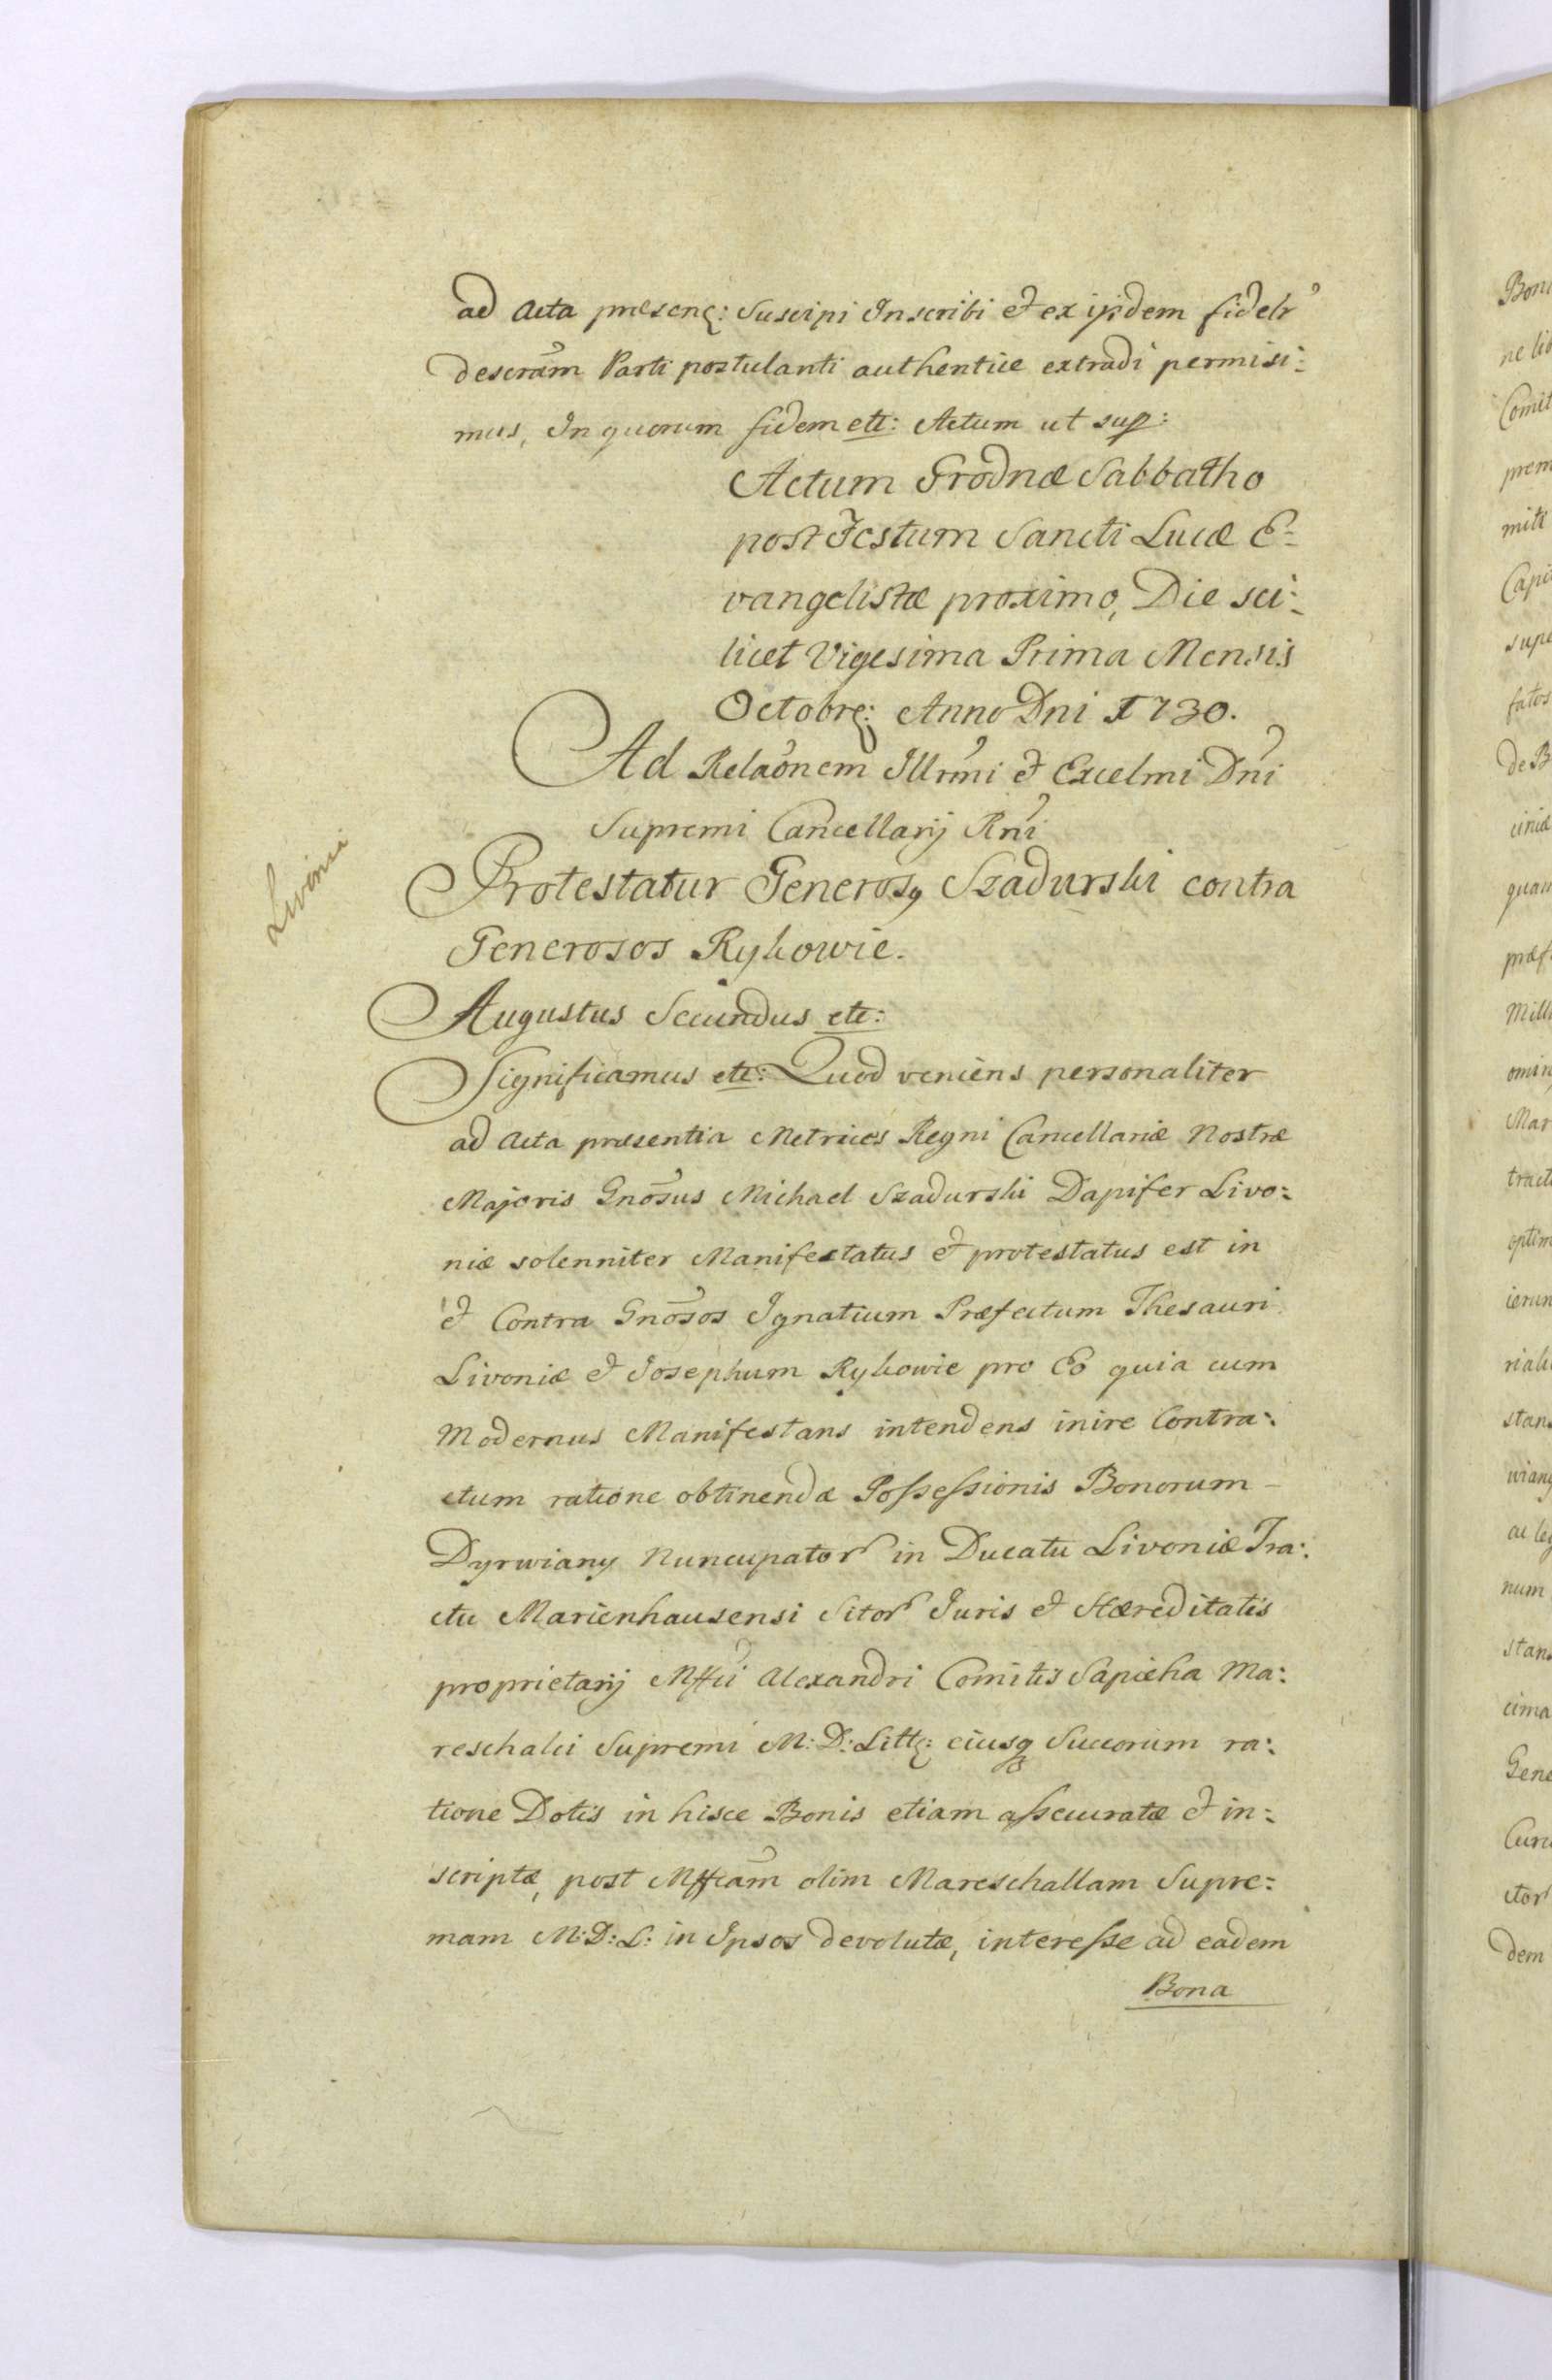 ad Acta præsenʒ: Suscipi Inscribi et ex ijsdem fidelr
descrãm Parti postulanti authentice extradi permisi:
mus, In quorum fidem etc: Actum ut sup:
Actum Grodnæ Sabbatho
post Festum Sancti Lucæ E-
vangelistæ proximo, Die sci:
licet Vigesima Prima Mensis
Octobrʒ: Anno Dni 1730.
Ad Relaõnem Illrmi et Excelmi Dni
Supremi Cancellarij Rni
Livonia
Protestatur Generosq Szadurski contra
Generosos Rykowie.
Augustus Secundus etc:
Significamus etc: Quod veniens personaliter
ad Acta præsentia Metrices Regni Cancellariæ Nostræ
Majoris Gnõsus Michael Szadurski Dapifer Livo:
niæ solenniter Manifestatus et protestatus est in
et Contra Gnõsos Ignatium Præfectum Thesauri
Livoniæ et Josephum Rykowie pro Eo quia cum
Modernus Manifestans intendens inire Contra:
ctum ratione obtinendæ Possessionis Bonorum -
Dyrwiany Nuncupator in Ducatu Livoniæ Tra:
ctu Marienhausensi Sitor Juris et Hæreditatis
proprietarij Mffci Alexandri Comitis Sapieha Ma:
reschalci Supremi M: D: Littʒ: eiusq Succorum ra:
tione Dotis in hisce Bonis etiam assecuratæ et in:
scriptæ, post Mffcam olim Mareschallam Supre:
mam M: D: L: in Ipsos devolutæ, interesse ad eadem
Bona